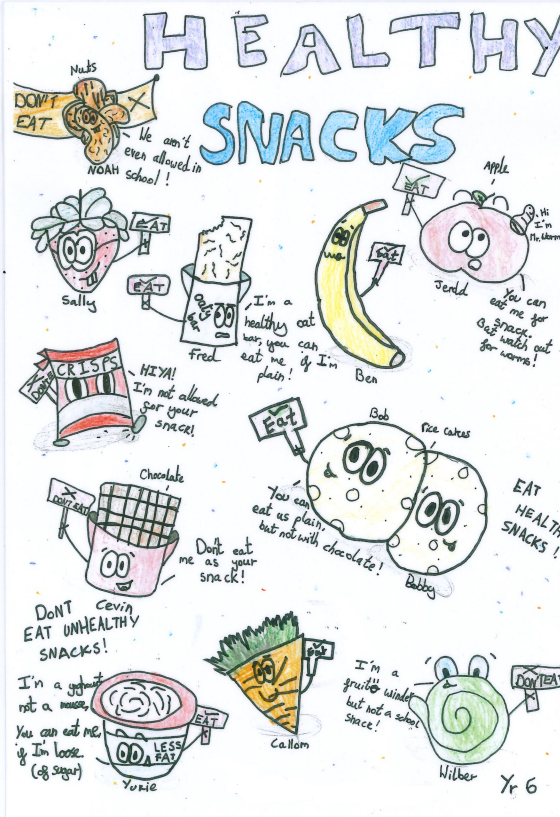 HEALTHY
SNACKS
Nuts
DON'T
EAT
NOAH
We aren't
even allowed in
school!
Sally
EAT
EAT
Oaty
bar
Fred
I'm a
healthy oat
bar, you can
eat me if I'm
plain!
Eat
Ben
EAT
Apple
Hi
I'm
Mr. Worm
Jerdd
You can
eat me for
snack.
But watch out
for worms!
CRISPS
DON'T
HIYA!
I'm not allowed
for your
snack!
Eat
Bob
rice cakes
You can
eat us plain,
but not with chocolate!
Bobby
EAT
HEALTHY
SNACKS!
Chocolate
DON'T EAT!
Cevin
Don't eat
me as your
snack!
DONT
EAT UNHEALTHY
SNACKS!
I'm a yoghourt
not a mousse,
You can eat me,
if I'm loose.
(of sugar)
EAT
LESS
FAT
Yurie
Eat
Callom
I'm a
fruit winder
but not a school
snack!
DON'T EAT
Wilber
Yr 6